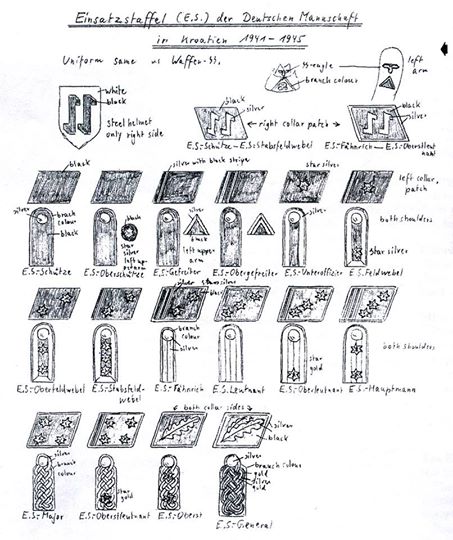 Einsatzstaffel (E.S.) der Deutschen Mannschaft
in Kroatien 1941-1945
Uniform same us Waffen-SS.
SS-eagle
branch colour
left
arm
white
black
steel helmet
only right side
black
silver
← right collar patch →
black
silver
E.S.-Schütze - E.S.-Stabsfeldwebel
E.S.-Fähnrich - E.S.-Oberstleut
nant
black
silver with black stripe
star silver
left collar
patch
silver
branch
colour
black
black
star
silver
left up-
per arm
silver
black
left upper
arm
silver
both shoulders
star silver
E.S.-Schütze
E.S.-Oberschütze
E.S.-Gefreiter
E.S.-Obergefreiter
E.S.-Unteroffizier
E.S.-Feldwebel
silver
stars silver
black
branch
colour
silver
star
gold
both shoulders
E.S.-Oberfeldwebel
E.S.-Stabsfeld-
webel
E.S.-Fähnrich
E.S.-Leutnant
E.S.-Oberleutnant
E.S.-Hauptmann
← both collar sides →
silver
black
silver
branch
colour
star
gold
silver
branch colour
gold
silver
gold
E.S.-Major
E.S.-Oberstleutnant
E.S.-Oberst
E.S.-General